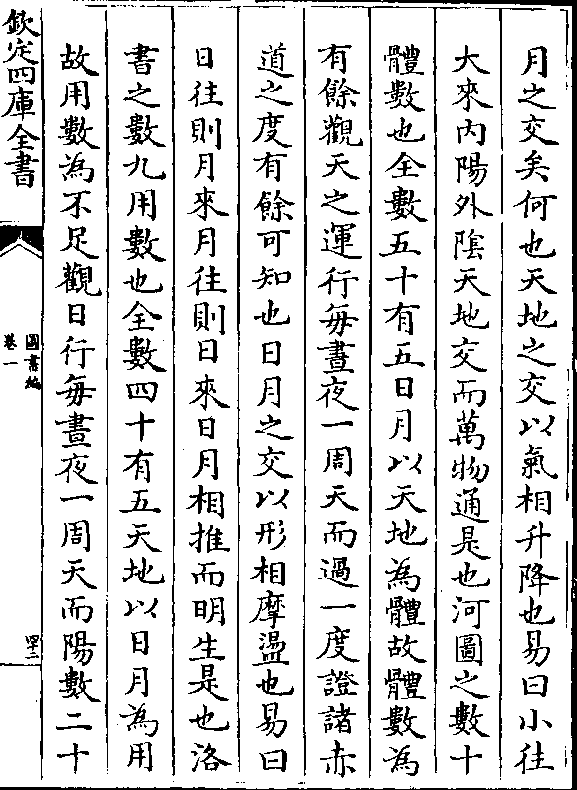 月之交矣何也天地之交以氣相升降也易曰小往
大來内陽外陰天地交而萬物通是也河圖之數十
體數也全數五十有五日月以天地為體故體數為
有餘觀天之運行每晝夜一周天而過一度證諸赤
道之度有餘可知也日月之交以形相摩盪也易曰
日往則月來月往則日來日月相推而明生是也洛
書之數九用數也全數四十有五天地以日月為用
故用數為不足觀日行每晝夜一周天而陽數二十
欽定四庫全書
圖書編
卷一
四十二